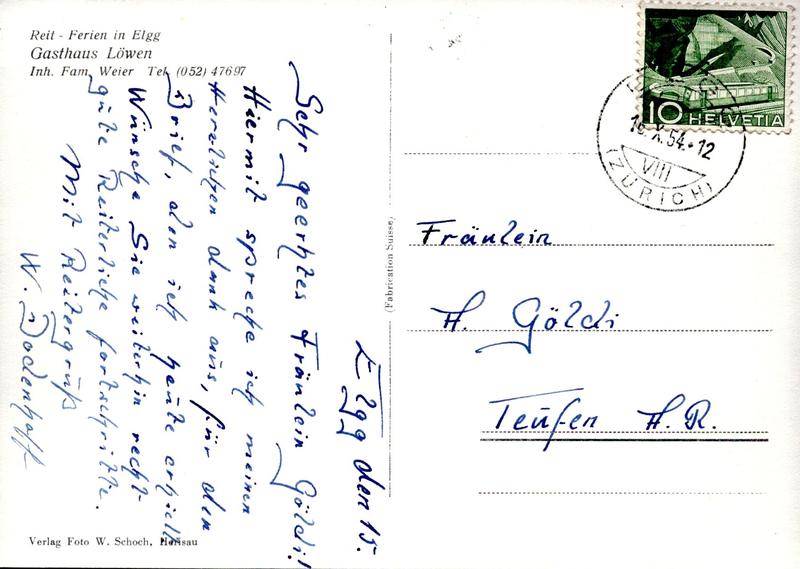 Reit - Ferien in Elgg
Gasthaus Löwen
Inh. Fam. Weier Tel. (052) 47697
Elgg den 15.
Sehr geerhtes Fräulein Göldi!
Hiermit spreche ich meinen
Herzlichen dank aus, für den
Brief, den ich heute erhielt
Wünsche Sie weiterhin recht
gute Reiterliche fortschritte.
Mit Reitergrüß
W. Dodenhoff
Verlag Foto W. Schoch, Herisau
(Fabrication Suisse)
10 HELVETIA
X.54-12
VIII
(ZÜRICH)
Fräulein
H. Göldi
Teufen A.R.